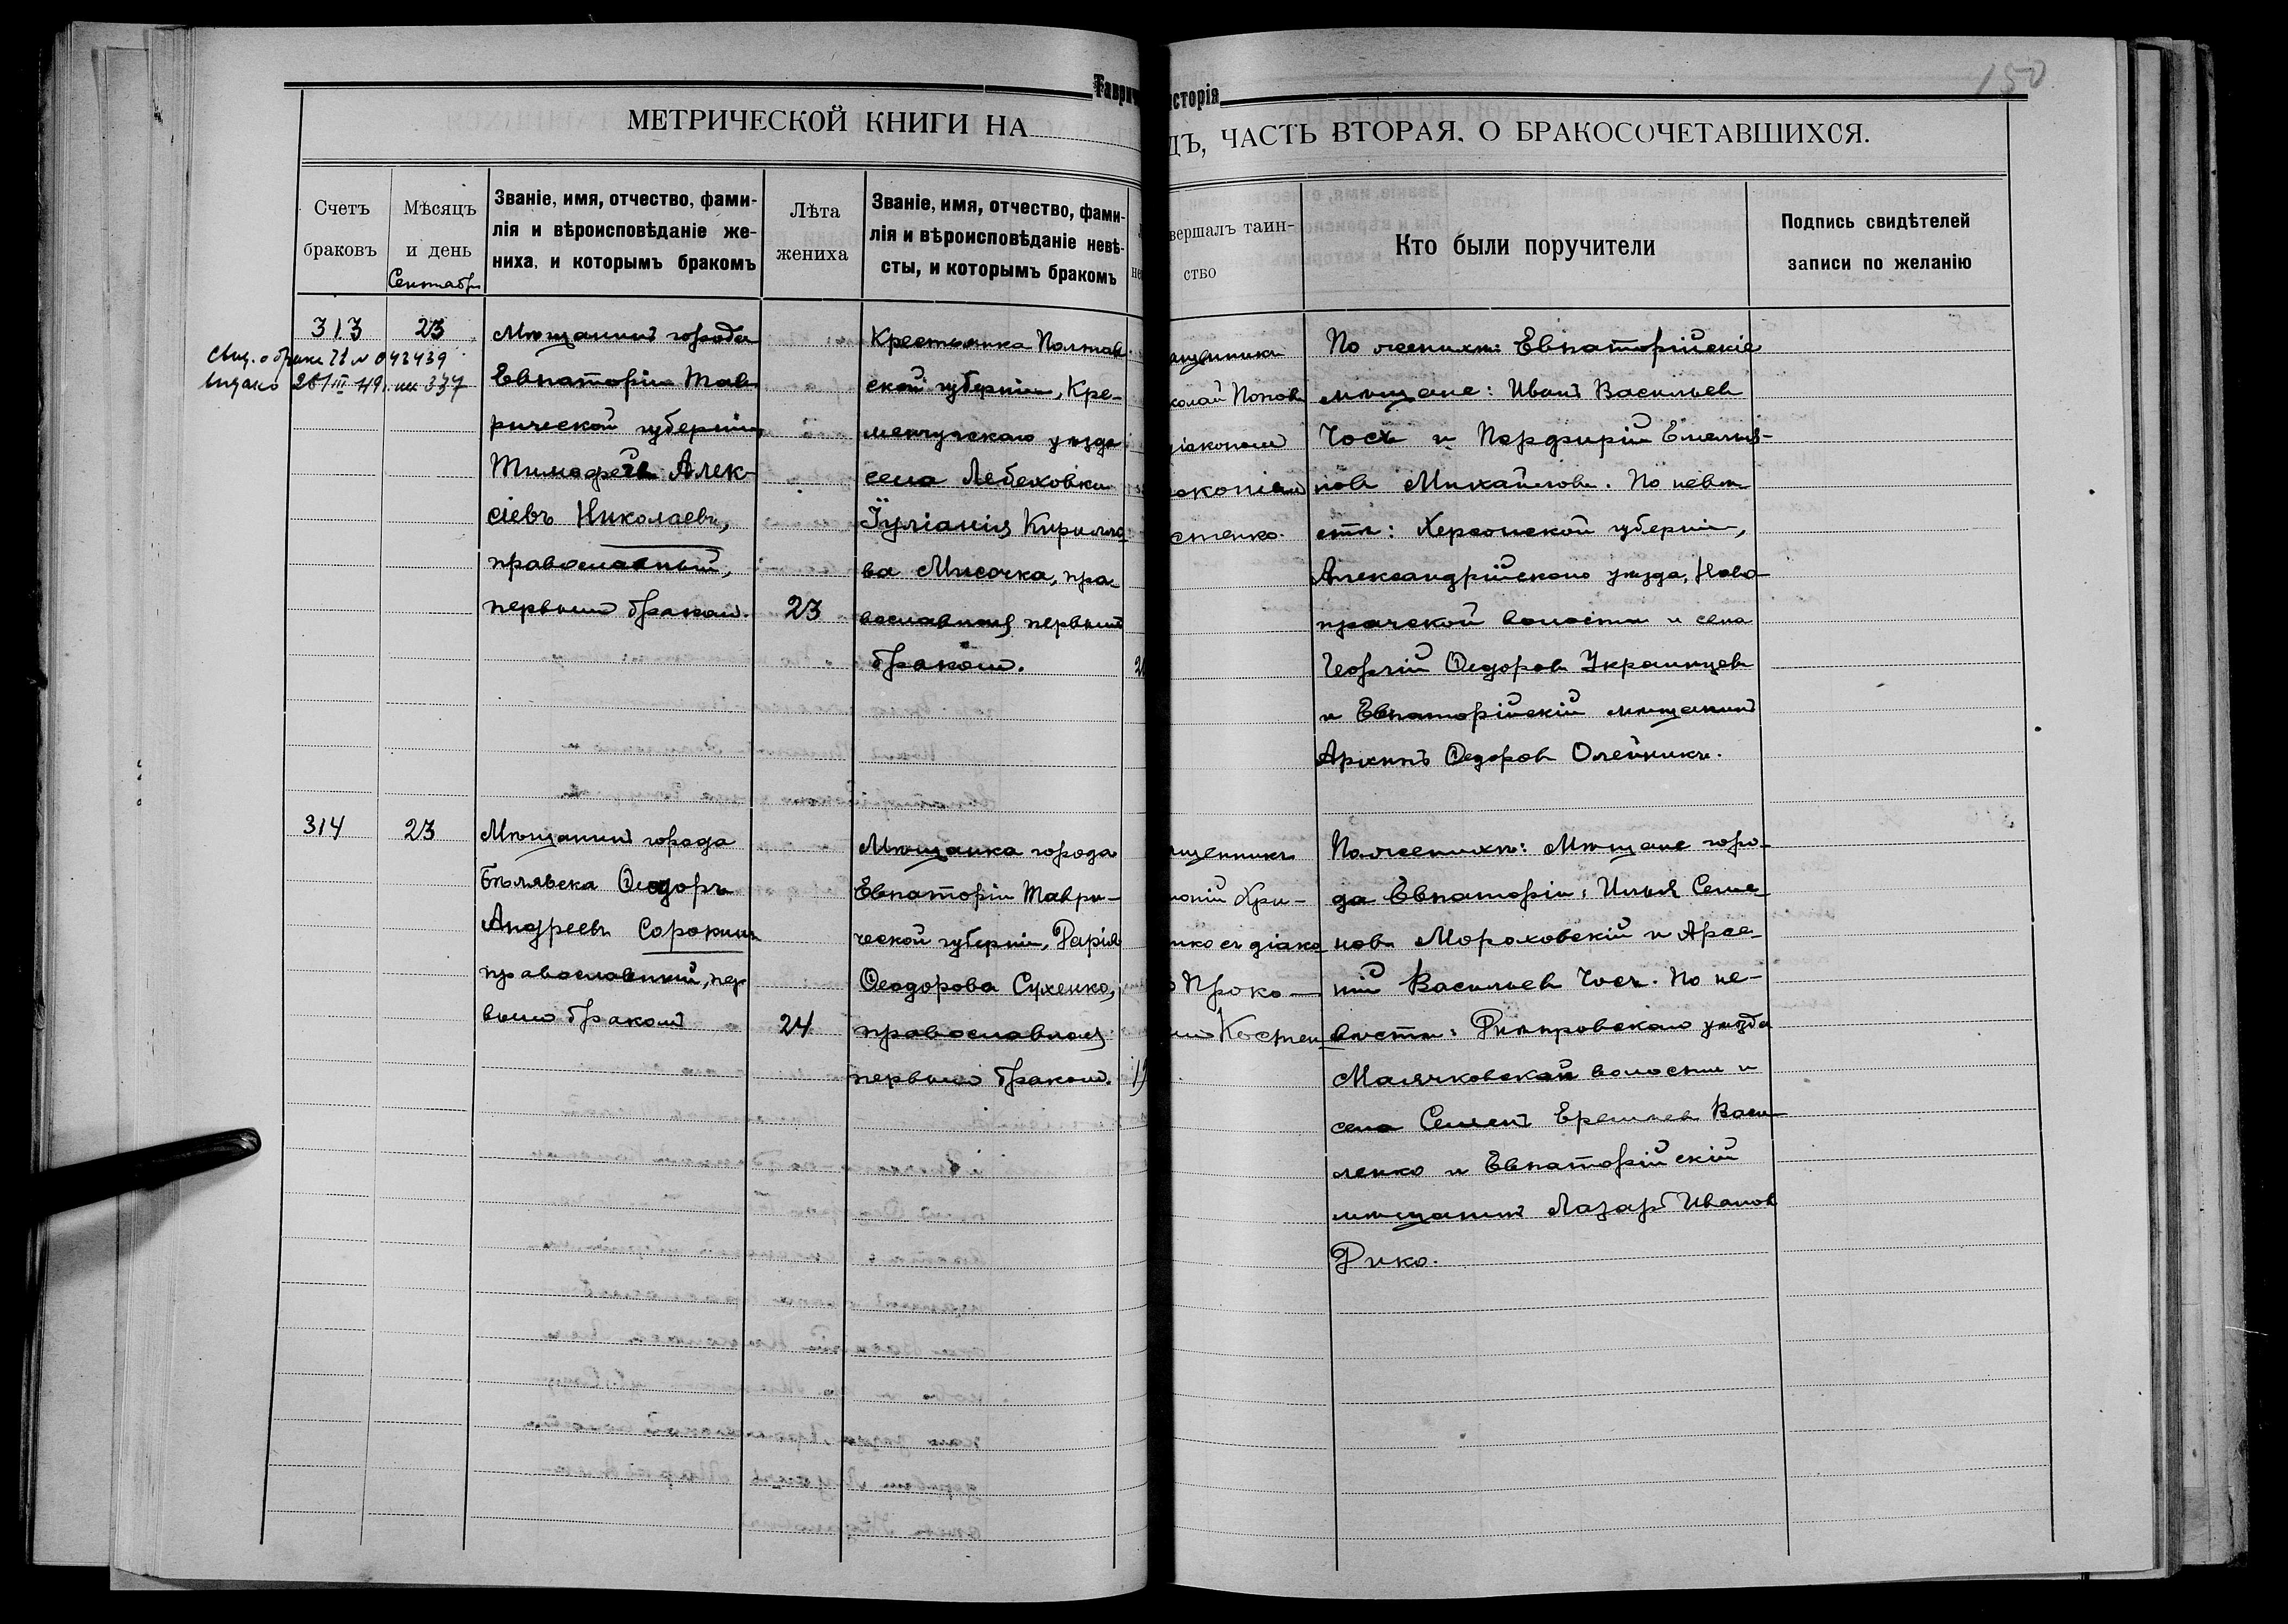 150
Таври
исторія
МЕТРИЧЕСКОЙ КНИГИ НА
ДЪ, ЧАСТЬ ВТОРАЯ, О БРАКОСОЧЕТАВШИХСЯ.
Счетъ
браковъ
Мѣсяцъ
и день
Сентябрь
Званіе, имя, отчество, фами-
лія и вѣроисповѣданіе же-
ниха, и которымъ бракомъ
Лѣта
жениха
Званіе, имя, отчество, фами-
лія и вѣроисповѣданіе невѣ-
сты, и которымъ бракомъ
вершалъ таин-
ство
Кто были поручители
Подпись свидѣтелей
записи по желанію
313
23
043439
26/III 49
Мѣщанинъ города
Евпаторіи Тав-
рической губерніи,
Тимофей Алек-
сіевъ Николаевъ,
православный,
первымъ бракомъ.
23
Крестьянка Полтав-
ской губерніи, Кре-
менчугскаго уѣзда
села Лебеховки
Іуліанія Кирилло-
ва Мисочка, пра-
вославная, первымъ
бракомъ.
ященникъ
колай Попов
діакономъ
окопіем
стенко.
По женихѣ: Евпаторійскіе
мѣщане: Иванъ Васильев
Чосъ и Порфирій Емелья-
нов Михайлов. По невѣ-
стѣ: Херсонской губерніи,
Александрійскаго уѣзда, Ново-
прагской волости и села
Георгій Ѳедоров Украинцев
и Евпаторійскій мѣщанинъ
Архипъ Ѳедоров Олейникъ.
314
23
Мѣщанинъ города
Бѣлявска Ѳеодоръ
Андреевъ Сорокинъ
православный, пер
вымъ бракомъ
24
Мѣщанка города
Евпаторіи Таври-
ческой губерніи, Дарія
Ѳеодорова Сухенко,
православная
первымъ бракомъ.
19
ященникъ
оній Кри-
нко съ діако
Проко-
Костен
По женихѣ: Мѣщане горо-
да Евпаторіи: Илья Семе-
нов Мороховскій и Арсе-
ній Васильев Чосъ. По не-
вѣстѣ: Днѣпровскаго уѣзда
Маячковской волости и
села Семенъ Ермилов Васи-
ленко и Евпаторійскій
мѣщанинъ Лазарь Иванов
Дико.